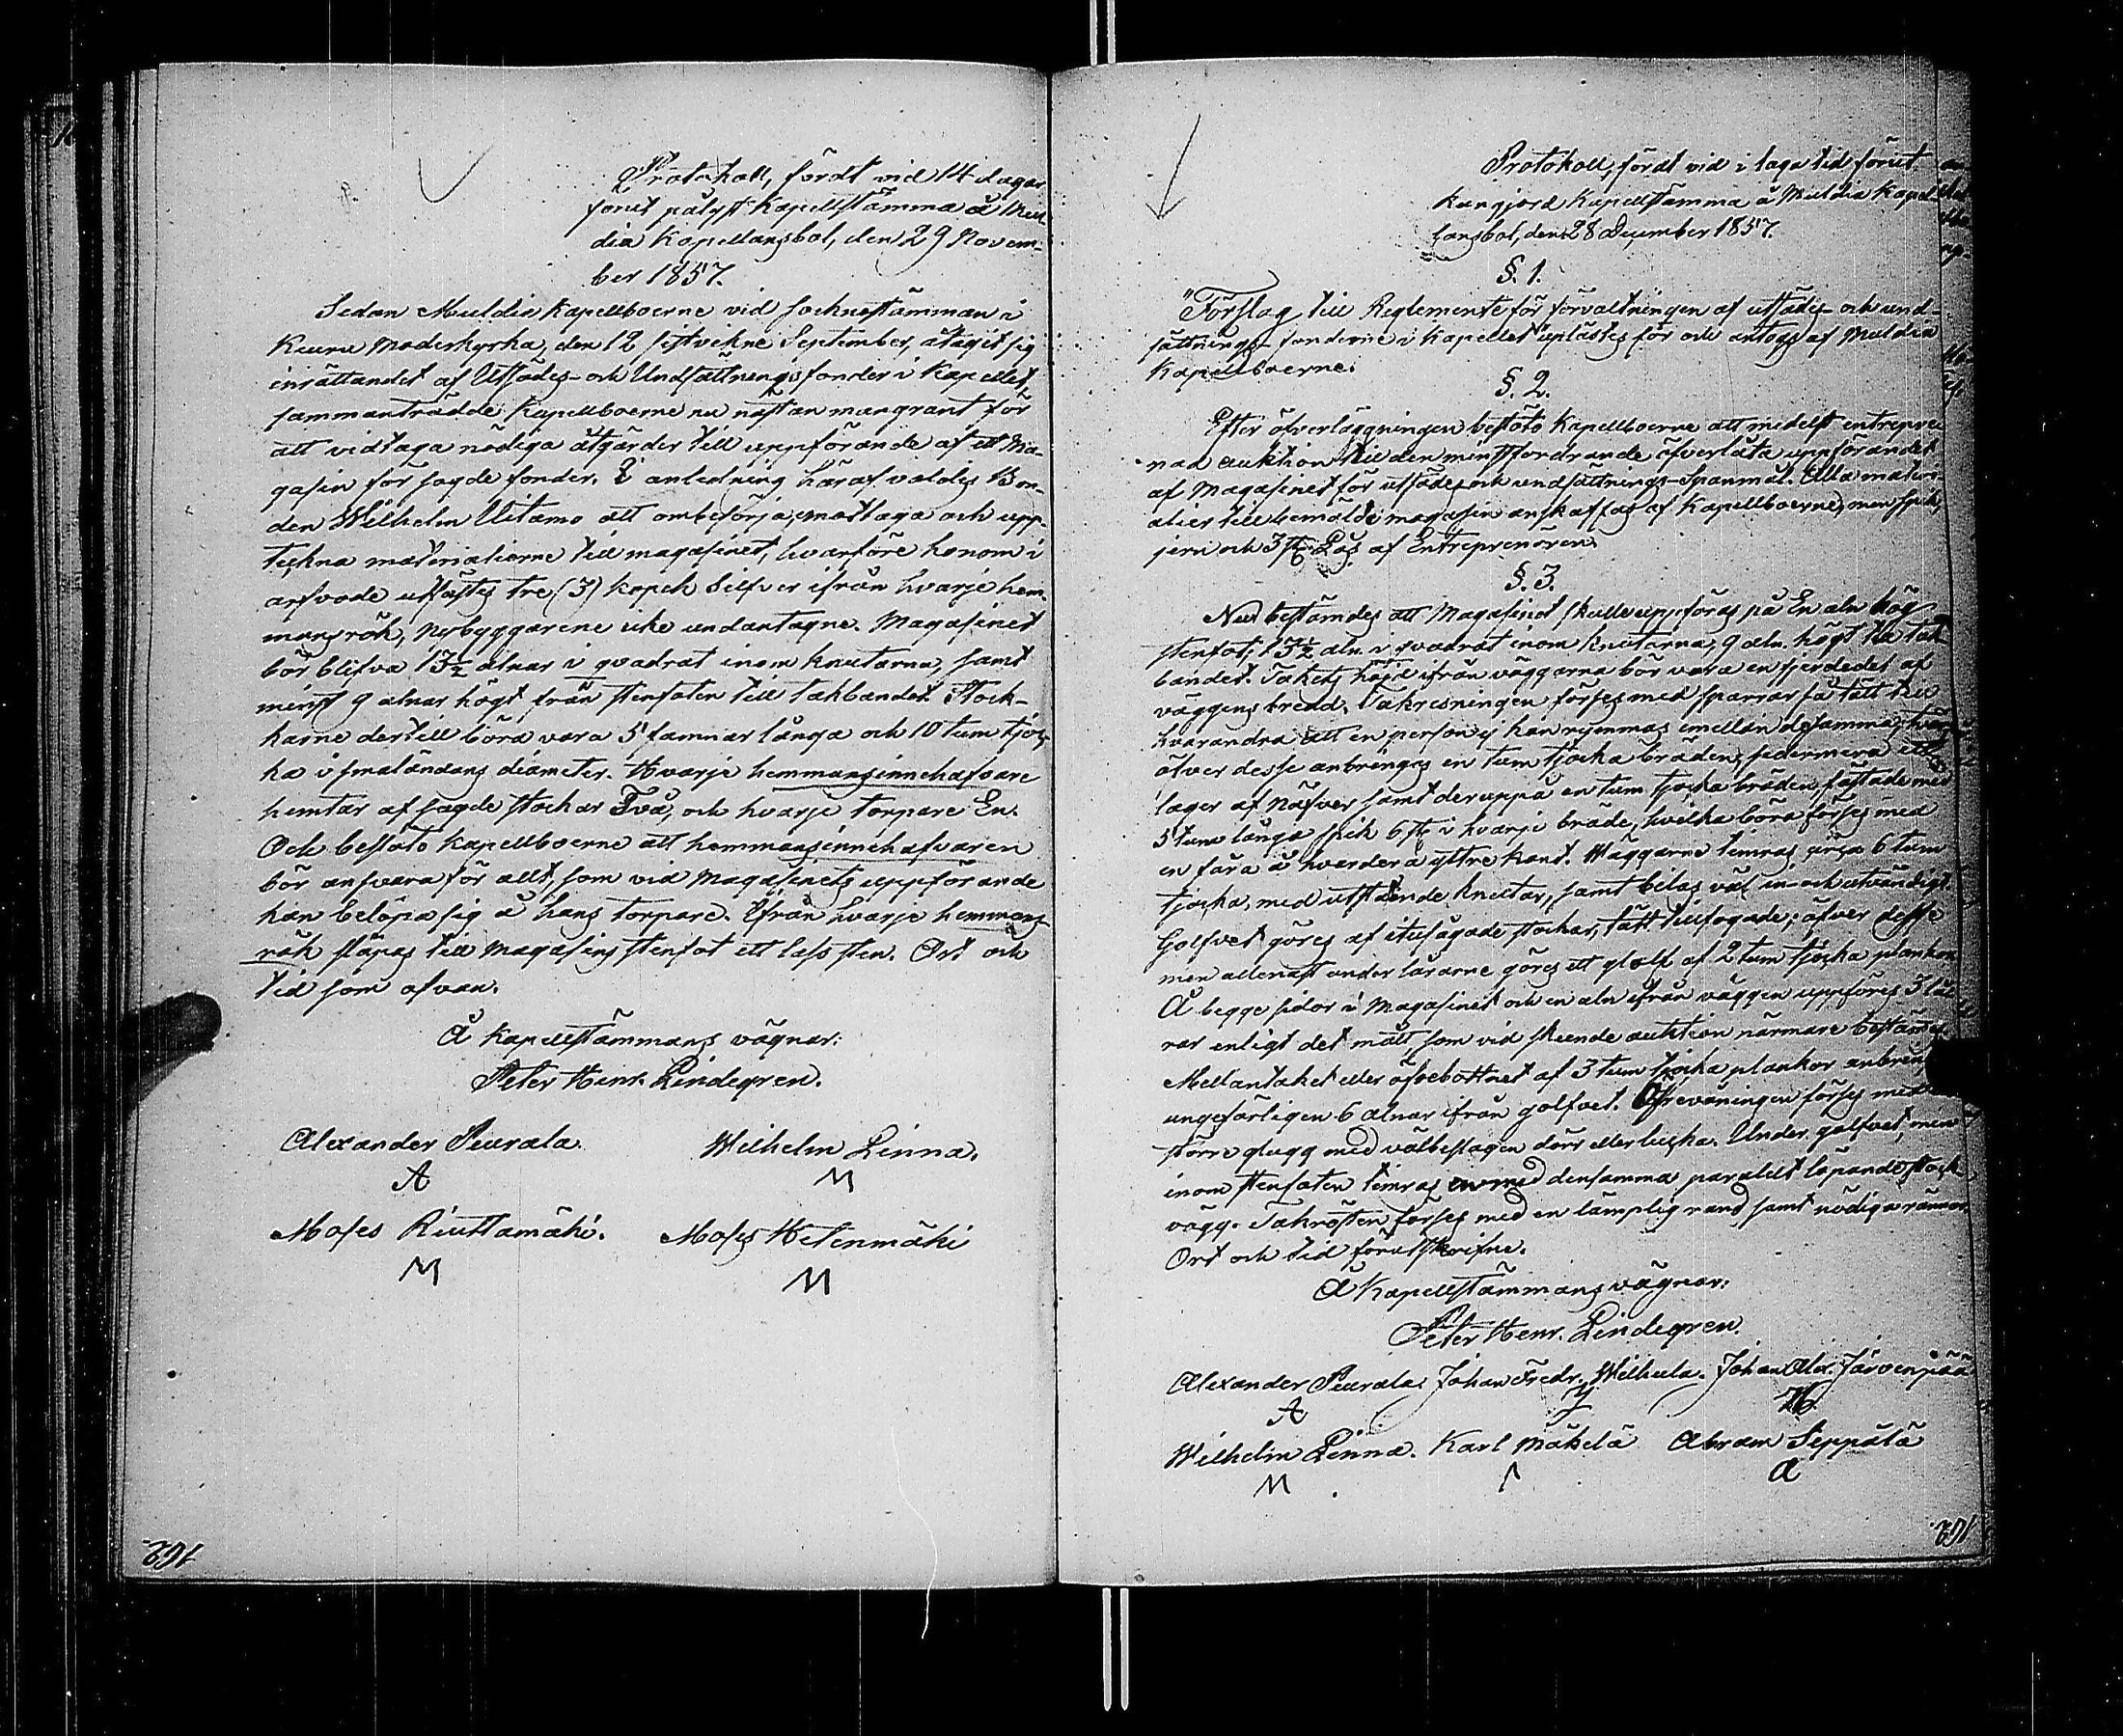 Protokoll, fördt vid 14 dagar
förut pålyst Kapellstämma å Mul-
dia Kapellansbol, den 29 Novem-
ber 1857.
Sedan Muldia Kapellboerne vid sochnestämman i
Keuru Moderkyrka, den 12 sistvekne September, åtagit sig
inrättandet af Utsädes- och Undsättningsfonder i Kapellet,
sammanträdde Kapellboerne nu nästan mangrant för
att vidtaga nödiga åtgärder till uppförande af ett Ma-
gasin för sagde fonder. I anledning häraf valdes Bon-
den Wilhelm Uitamo att ombesörja, mottaga och upp-
teckna materialierne till magasinet, hvarföre honom i
arfvode utfästes tre (3) kopek Silfver ifrån hvarje hem-
mansrök, nybyggarene icke undantagne. Magasinet
bör blifva 13½ alnar i qvadrat inom knutarna, samt
minst 9 alnar högt från stenfoten till takbandet. Stock-
karne dertill böra vara 5 famnar långa och 10 tum tjoc-
ka i smaländans diameter. Hvarje hemmansinnehafvare
hemtar af sagde stockar Två, och hvarje torpare En.
Och beslöto Kapellboerne att hemmansinnehafvaren
bör ansvara för allt, som vid Magasinets uppförande
kan belöpa sig å hans torpare. Ifrån hvarje hemmans-
rök släpas till Magasins stenfot ett lass sten. Ort och
tid som ofvan.
Å Kapellstämmans vägnar:
Peter Henr. Lindegren.
Alexander Peurala. Wilhelm Linna.
A M
Moses Riuttamäki. Moses Hetenmäki
M M
162.
Protokoll, fördt vid i laga tid förut
kungjord Kapellstämma å Muldia Kapel-
lansbol, den 28 December 1857.
§. 1.
"Förslag till Reglemente för förvaltningen af utsädes- och und-
sättnings-fonderne i Kapellet" uplästes för och antogs af Muldia
Kapellboerne.
§. 2.
Efter öfverläggningen beslöto Kapellboerne att medelst entrepre-
nad auktion till den minstfordrande öfverlåta uppförandet
af Magasinet för utsädes och undsättnings-Spanmål. Alla materi-
alier till bemälde magasin anskaffas af Kapellboerne, men spik,
jern och 3 st. Lås af Entreprenören.
§. 3.
Nu bestämdes att Magasinet skulle uppföras på En aln hög
stenfot, 13½ aln. i qvadrat inom knutarna, 9 aln. högt till tak-
bandet. Takets höjd ifrån väggarna bör vara en fjerdedel af
väggens bredd. Takresningen förses med sparrar så tätt till
hvarandra att en person ej kan rymmas emellan desamma,
öfver desse anbringas en tum tjocka bräden, sedermera ett
lager af näfver samt deruppå en tum tjocka bräden, fästade med
5 tum långa spik 6 st. i hvarje bräde, hvilka böra förses med
en fåra å hvardera yttre kant. Wäggarne timras circa 6 tum
tjocka, med utstående knutar, samt bilas väl in- och utvändigt.
Golfvet göres af itusågade stockar, tätt tillfogade; öfver desse
men allenast under lårarne göres ett golf af 2 tum tjocka plankor
Å begge sidor i Magasinet och en aln ifrån väggen uppföres 3 lå-
rar enligt det mått, som vid skeende auktion närmare bestämmes.
Mellantaket eller öfvebottnet af 3 tum tjocka plankor
ungefärligen 6 alnar ifrån golfvet. Öfrevåningen förses med
större glugg med välbeslagen dörr eller lucka. Under golfvet, men
inom stenfoten timras en med densamma paralelt löpande stock-
vägg. Takrösten förses med en lämplig rand, samt nödiga rännor.
Ort och tid förutskrifne.
Å Kapellstämmans vägnar:
Peter Henr. Lindegren.
Alexander Peurala. Johan Fredr. Wilhula. Johan Alex. Järvenpää
A
Wilhelm Linna. Karl Mäkelä Abram Seppälä
M A
162.